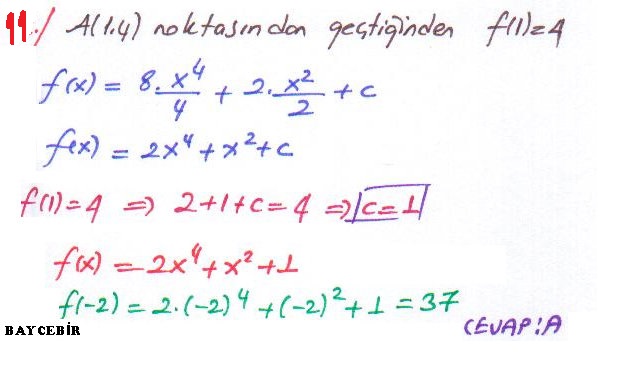 11./ A(1,4) noktasından geçtiğinden f(1)=4
f(x) = 8·x⁴/4 + 2·x²/2 + c
f(x) = 2x⁴+x²+c
f(1)=4 ⇒ 2+1+c=4 ⇒ c=1
f(x) = 2x⁴+x²+1
f(-2) = 2·(-2)⁴+(-2)²+1=37
CEVAP:A
BAYCEBİR